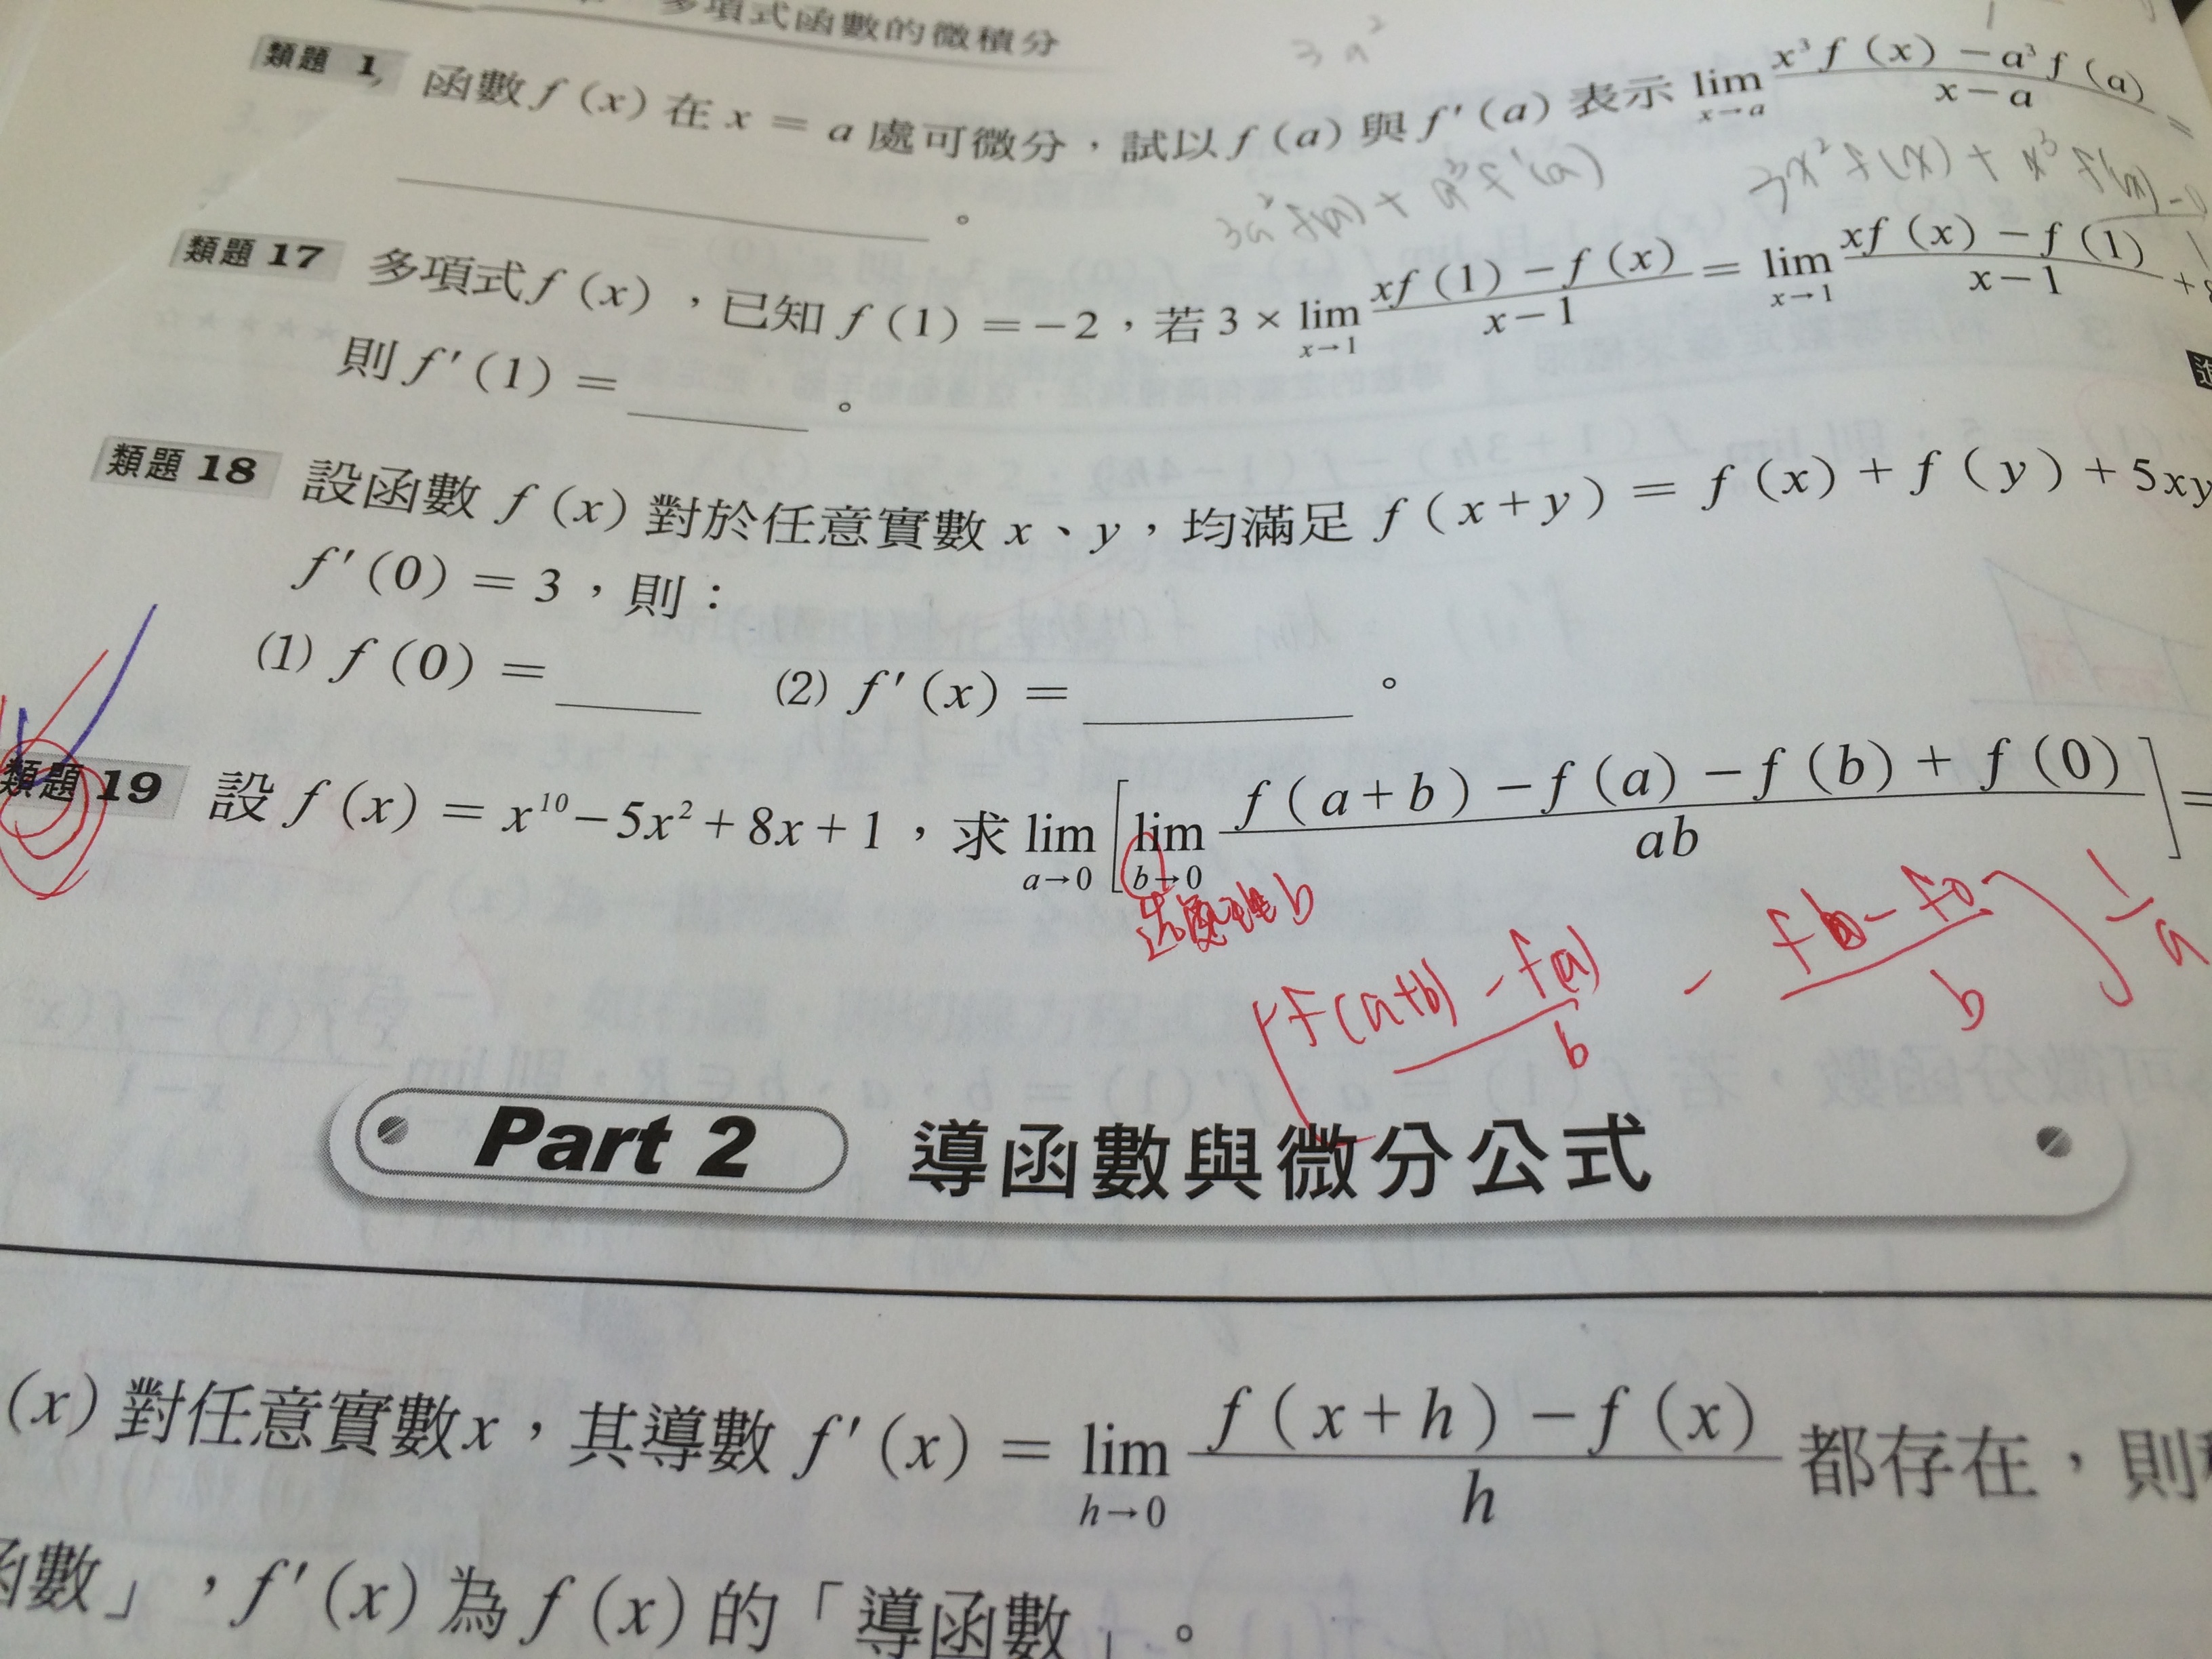 多項式函數的微積分
3a²
類題 1 函數 f (x) 在 x = a 處可微分，試以 f (a) 與 f' (a) 表示 lim x→a x³ f (x) − a³ f (a) / x − a =
______。
3a² f(a) + a³ f'(a)
3x² f(x) + x³ f'(x) - 0
類題 17 多項式 f (x)，已知 f (1) = −2，若 3 × lim x→1 xf (1) − f (x) / x − 1 = lim x→1 xf (x) − f (1) / x − 1 +
則 f' (1) = ______。
類題 18 設函數 f (x) 對於任意實數 x、y，均滿足 f (x+y) = f (x) + f (y) + 5xy
f' (0) = 3，則：
(1) f (0) = ______ (2) f' (x) = ______。
類題 19 設 f (x) = x¹⁰ − 5x² + 8x + 1，求 lim a→0 [ lim b→0 f (a+b) − f (a) − f (b) + f (0) / ab ] =
處理 b
( f(a+b) - f(a) / b - fb - f0 / b ) 1/a
Part 2 導函數與微分公式
(x) 對任意實數 x，其導數 f' (x) = lim h→0 f (x+h) − f (x) / h 都存在，則
函數」，f' (x) 為 f (x) 的「導函數」。